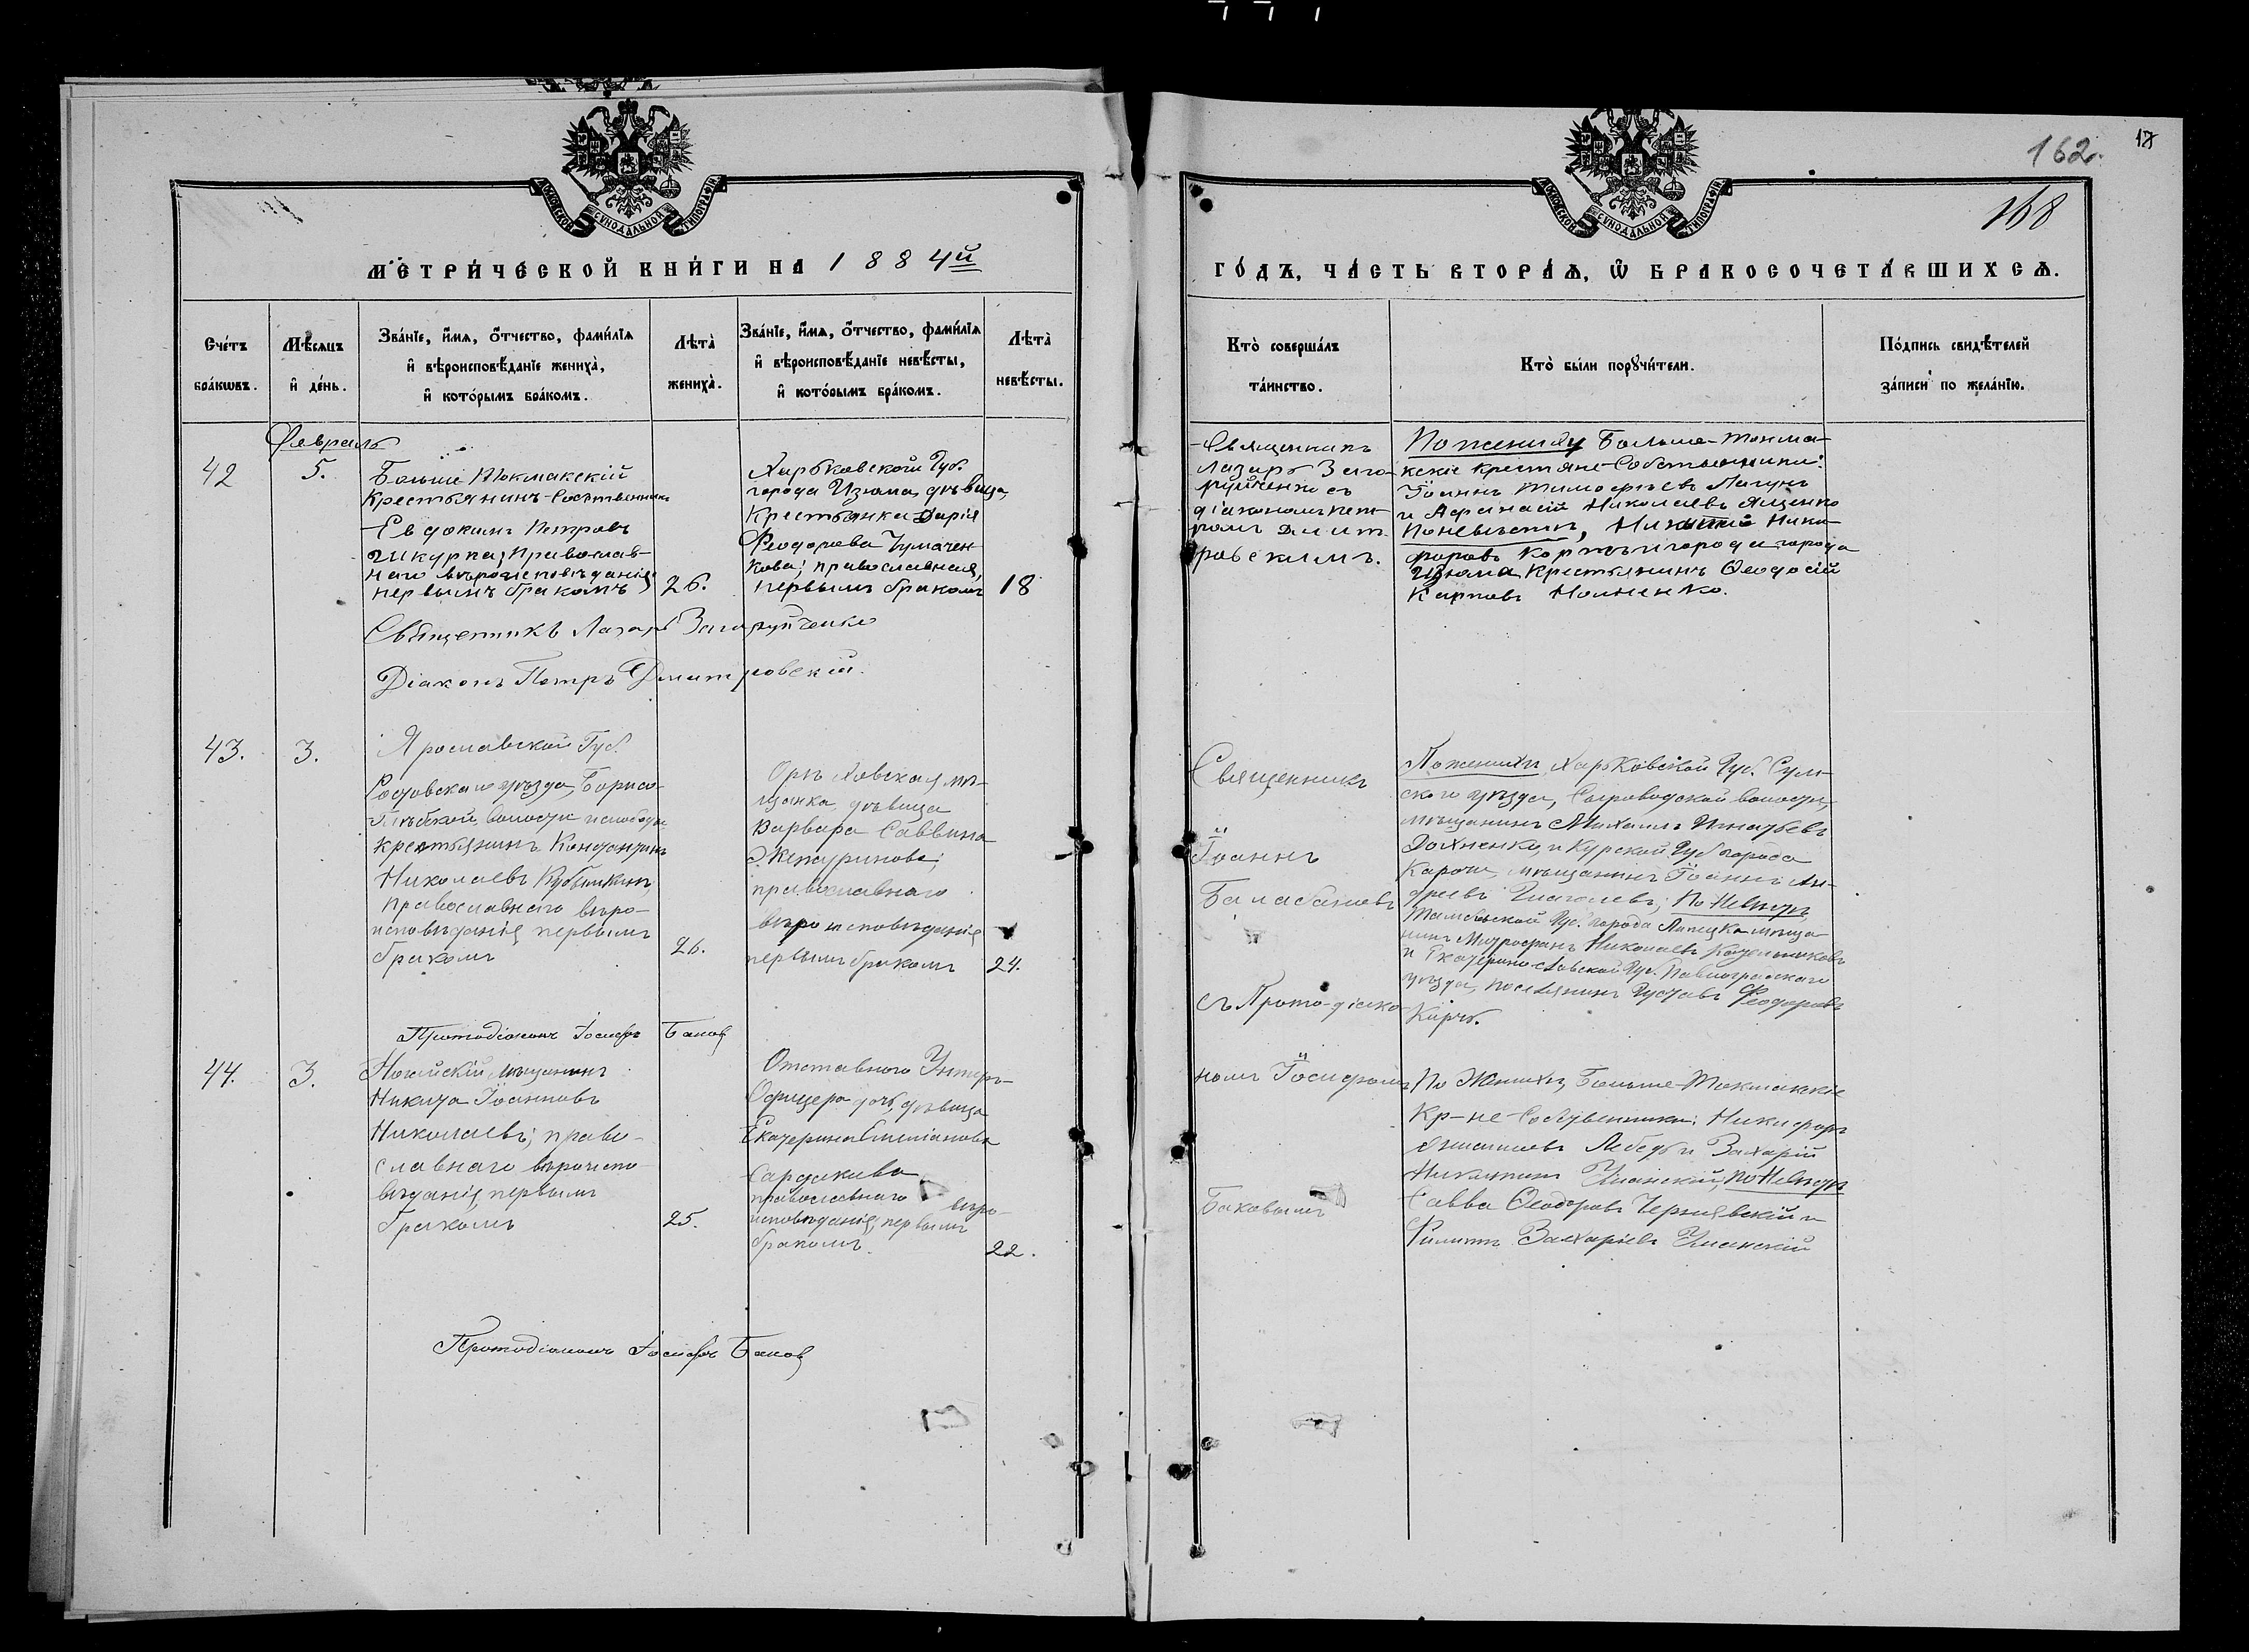 162.
17
168
МОСКОВСКОЙ СѴНОДАЛЬНОЙ ТИПОГРАФІИ
МОСКОВСКОЙ СѴНОДАЛЬНОЙ ТИПОГРАФІИ
МЕТРИ́ЧЕСКОЙ КНИ́ГИ НА 1884й
ГО́ДЪ, ЧА́СТЬ ВТОРА́Ѧ, Ѡ҆ БРАКОСОЧЕТА́ВШИХСѦ.
Сче́тъ
бра́кѡвъ.
Мѣ́сѧцъ
и҆ де́нь.
Зва́нїе, и҆́мѧ, ѻ҆́тчество, фами́лїѧ
и҆ вѣроисповѣ́данїе жениха̀,
и҆ кото́рымъ бра́комъ.
Лѣта̀
жениха̀.
Зва́нїе, и҆́мѧ, ѻ҆́тчество, фами́лїѧ
и҆ вѣроисповѣ́данїе невѣ́сты,
и҆ кото́рымъ бра́комъ.
Лѣта̀
невѣ́сты.
Кто̀ соверша́лъ
та́инство.
Кто̀ бы́ли порꙋчи́тели.
По́дпись свидѣ́телей
за́писи по жела́нїю.
Февраль
42
5.
Больше Токмакскій
Крестьянинъ-Собственникъ
Евдокимъ Петровъ
Шкурка, Православ-
наго вѣроисповѣданія,
первымъ бракомъ
26.
Харьковской Губ.
города Изюма, дѣвица,
Крестьянка Дарія
Феодорова Чумачен-
кова; православная,
первымъ бракомъ
18
Священникъ
Лазарь Заго-
руйченко съ
діакономъ Пет-
ромъ Дмит-
ровскимъ.
По жениху Больше-Токма-
кскіе крестьяне-Собственники:
Іоаннъ Тимофѣевъ Лагунъ
и Афанасій Николаевъ Яценко
По невѣстѣ, Ники-
форовъ города
Изюма Крестьянинъ Ѳеодосій
Карповъ
Священникъ Лазарь Загоруйченко
Діаконъ Петръ Дмитровскій.
43.
3.
Ярославской Губ.
Ростовскаго уѣзда, Борисо-
глѣбской волости и слободы
крестьянинъ Константинъ
Николаевъ Кубышкинъ,
православнаго вѣро-
исповѣданія первымъ
бракомъ
26.
Орѣховская мѣ-
щанка, дѣвица
Варвара Саввина
православнаго
вѣроисповѣданія
первымъ бракомъ
24.
Священникъ
Іоаннъ
Балабановъ
съ Прото-діако-
номъ Іосифомъ
Баковымъ
По женихѣ, Харьковской Губ. Сум-
скаго уѣзда, Сыроводской волости,
мѣщанинъ Михаилъ Игнатьевъ
Дахненко, и Курской Губ. города
Карочи, мѣщанинъ Іоаннъ Ан-
дреевъ По Невѣстѣ
Тамбовской Губ. города Липецка мѣща-
нинъ Митрофанъ Николаевъ Котельниковъ
и Екатеринославской Губ. Павлоградскаго
уѣзда, поселянинъ Густавъ Феодоровъ
Кирчъ.
Протодіаконъ Іосифъ Баковъ
44.
3.
Ногайскій мѣщанинъ
Никита Іоанновъ
Николаевъ; право-
славнаго вѣроиспо-
вѣданія, первымъ
бракомъ
25.
Отставного Унтеръ-
Офицера дочь, дѣвица
Екатерина Емеліанова
Сардакова
православнаго вѣро-
исповѣданія, первымъ
бракомъ.
22.
По Женихѣ, Больше-Токмакскіе
Кр-не-Собственники: Никифоръ
Лебедь и Захарій
Никитинъ Уманскій, по Невѣстѣ
Савва Ѳеодоровъ Чернявскій и
Филиппъ Захаріевъ Уманскій
Протодіаконъ Іосифъ Баковъ